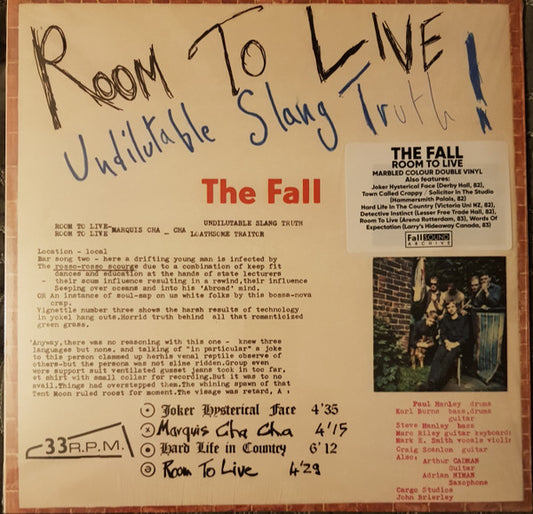 ROOM TO LIVE
Undilutable Slang Truth!
The Fall
THE FALL
ROOM TO LIVE
MARBLED COLOUR DOUBLE VINYL
Also features:
Joker Hysterical Face (Derby Hall, 82),
Town Called Crappy / Solicitor In The Studio
(Hammersmith Palais, 82)
Hard Life In The Country (Victoria Uni NZ, 82),
Detective Instinct (Lesser Free Trade Hall, 82),
Room To Live (Arena Rotterdam, 83), Words Of
Expectation (Larry's Hideaway Canada, 83)
FallSOUND
ARCHIVE
UNDILUTABLE SLANG TRUTH
ROOM TO LIVE-MARQUIS CHA _ CHA
ROOM TO LIVE LOATHSOME TRAITOR
Location - local
Bar song two - here a drifting young man is infected by
The rosso-rosso scourge due to a combination of keep fit
dances and education at the hands of state lecturers
- their scum influence resulting in a rewind,their influence
Seeping over oceans and into his 'Abroad' mind.
OR An instance of soul-sap on us white folks by this bossa-nova
crap.
Vignettle number three shows the harsh results of technology
in yokel hang outs.Horrid truth behind all that romanticized
green grass.
'Anyway,there was no reasoning with this one - knew three
languages but none, and talking of "in particular" a joke
to this person clammed up herhis venal reptile observe of
others-but the persona was not sline ridden.Group even
were support suit ventilated gusset jeans took in too far,
et shirt with small collar for recording.But it was to no
avail.Things had overstepped them.The whining spawn of that
Tent Moon ruled roost for moment.The visage was retard, A :
Joker Hysterical Face 4'35
Marquis Cha Cha 4'15
Hard Life in Country 6'12
Room To Live 4'29
33 R.P.M.
Paul Hanley drums
Karl Burns bass,drums
guitar
Steve Hanley bass
Marc Riley guitar keyboards
Mark E. Smith vocals violin
Craig Scanlon guitar
Also:
Arthur CADMAN
Guitar
Adrian NIMAN
Saxophone
Cargo Studios
John Brierley